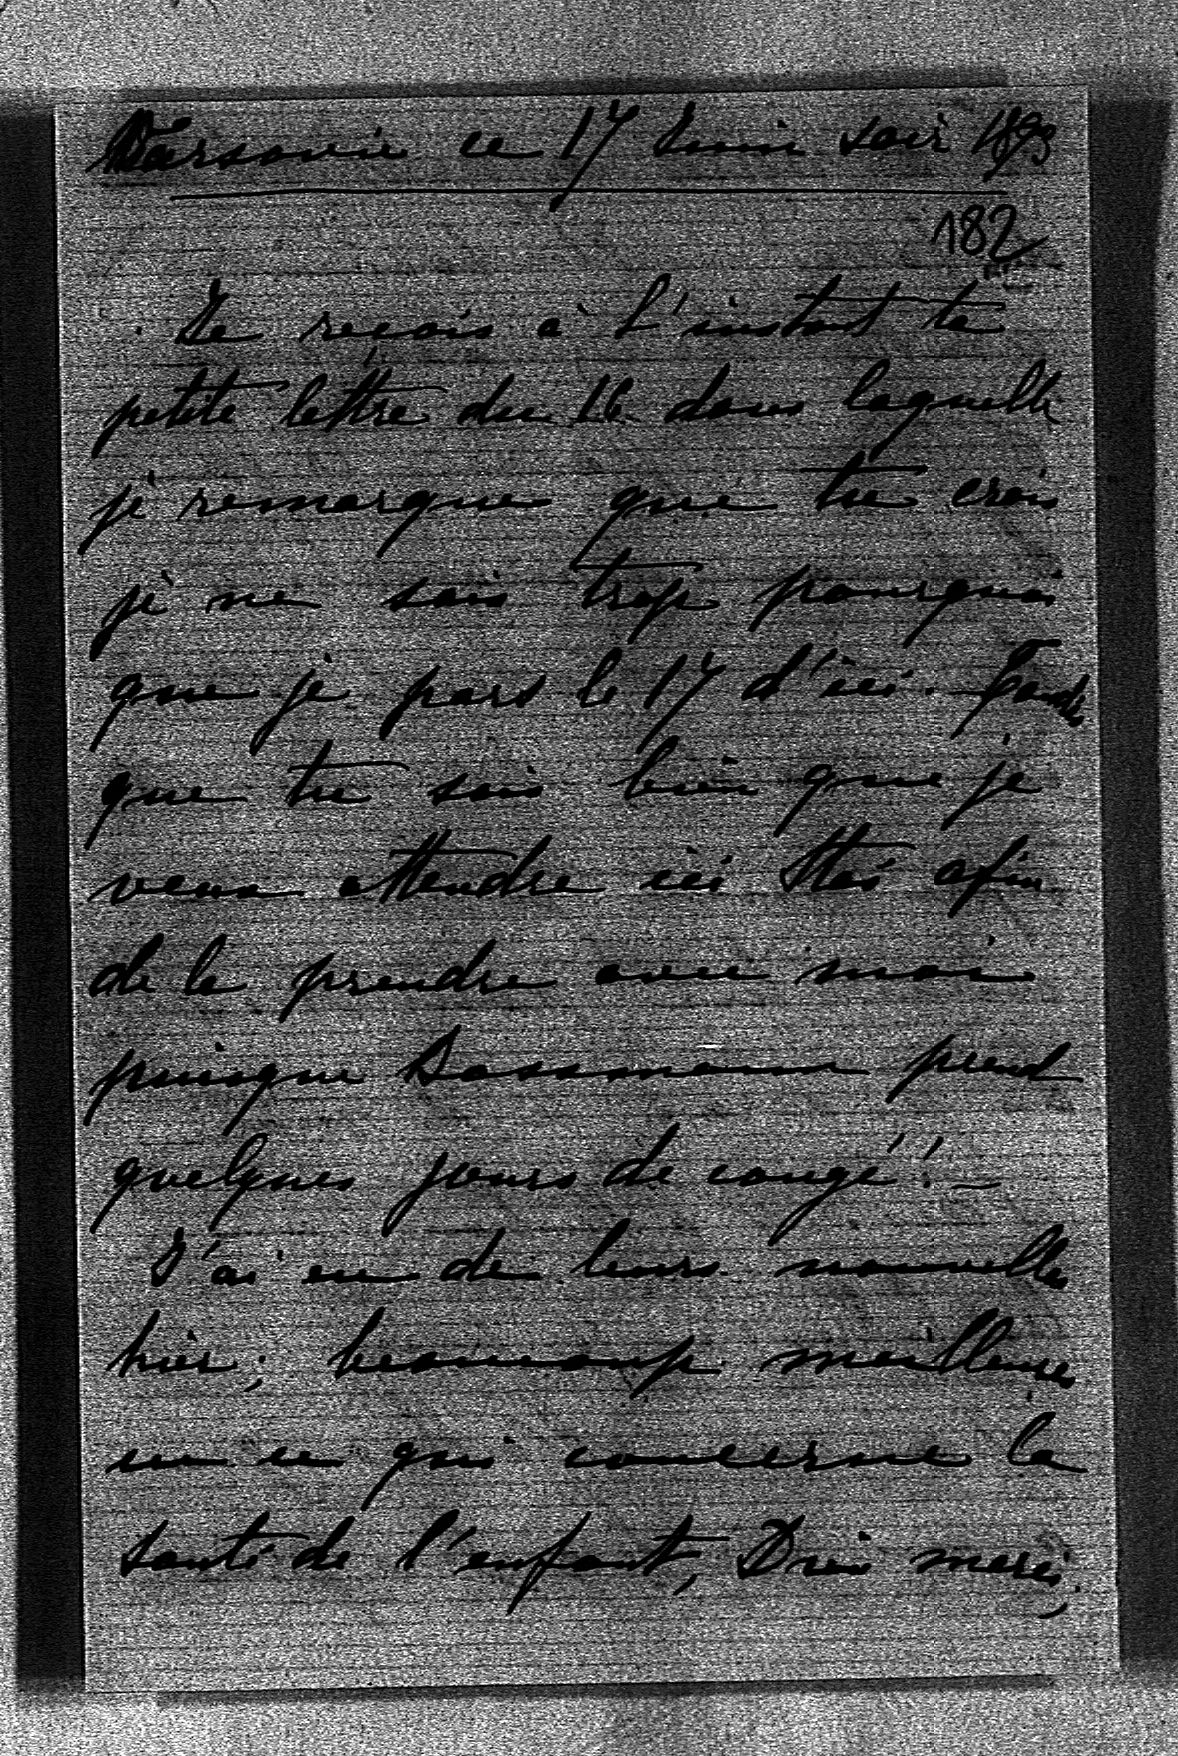 Varsovie ce 17 Juin soir 1893
182
Je reçois à l'instant ta
petite lettre du 16 dans laquelle
je remarque que tu crois
je ne sais trop pourquoi
que je pars le 17 d'ici.
que tu sais bien que je
veux attendre ici Staś afin
de le prendre avec moi
puisque Dassmann prend
quelques jours de congé! –
J'ai eu de leurs nouvelles
hier; beaucoup meilleures
en ce qui concerne la
santé de l'enfant, Dieu merci,